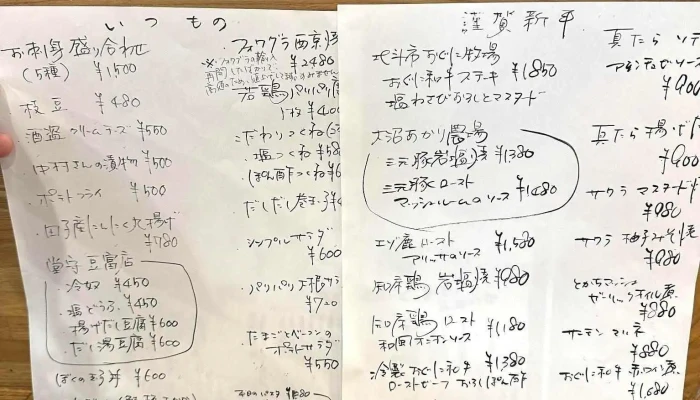 いつもの
お刺身盛り合わせ
(5種) ¥1500
枝豆 ¥480
酒盗クリームチーズ ¥550
中村さんの漬物 ¥500
ポテトフライ ¥500
田子産にんにく丸揚げ
¥780
豆富店
・冷奴 ¥450
・塩どうふ ¥450
揚げだし豆腐 ¥600
・だし湯豆腐 ¥600
ぼくの玉子丼 ¥600
フォワグラ西京焼
¥2480
※フォワグラの輸入
若鶏パリパリ
¥400
こだわりつくね
・塩つくね ¥580
・ぽん酢つくね
だしだし巻き玉子
シンプルサラダ
¥600
パリパリ大根サラ
¥700
たまごとベーコンの
ポテトサラダ
¥550
謹賀新年
北斗市おぐに牧場
おぐに和牛ステーキ ¥1850
塩わさびおろしとマスタード
大沼あかり農場
三元豚岩塩焼 ¥1380
三元豚ロースト
マッシュルームのソース ¥1480
エゾ鹿ロースト
アリッサのソース ¥1,580
知床鶏 岩塩焼 ¥980
知床鶏ロースト
和風オニオンソース ¥1180
冷製おぐに和牛 ¥1380
ローストビーフ おろしぽん酢
真だらソテ
¥900
真だら揚げ
¥900
サクラマスタード
¥980
サクラ柚子みそ焼
¥980
とかちマッシュ
ガーリックオイル煮
¥880
サーモンマリネ
¥880
おぐに和牛 赤ワイン煮
¥1,680